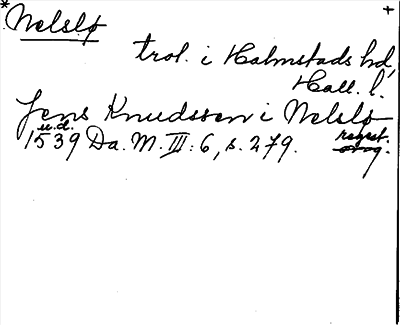 * Nelslø +
trol. i Halmstads hd,
Hall. l.
Jens Knudssen i Nelslø
u.d.
1539 Da. M. III: 6, s. 279. regest.
orig.